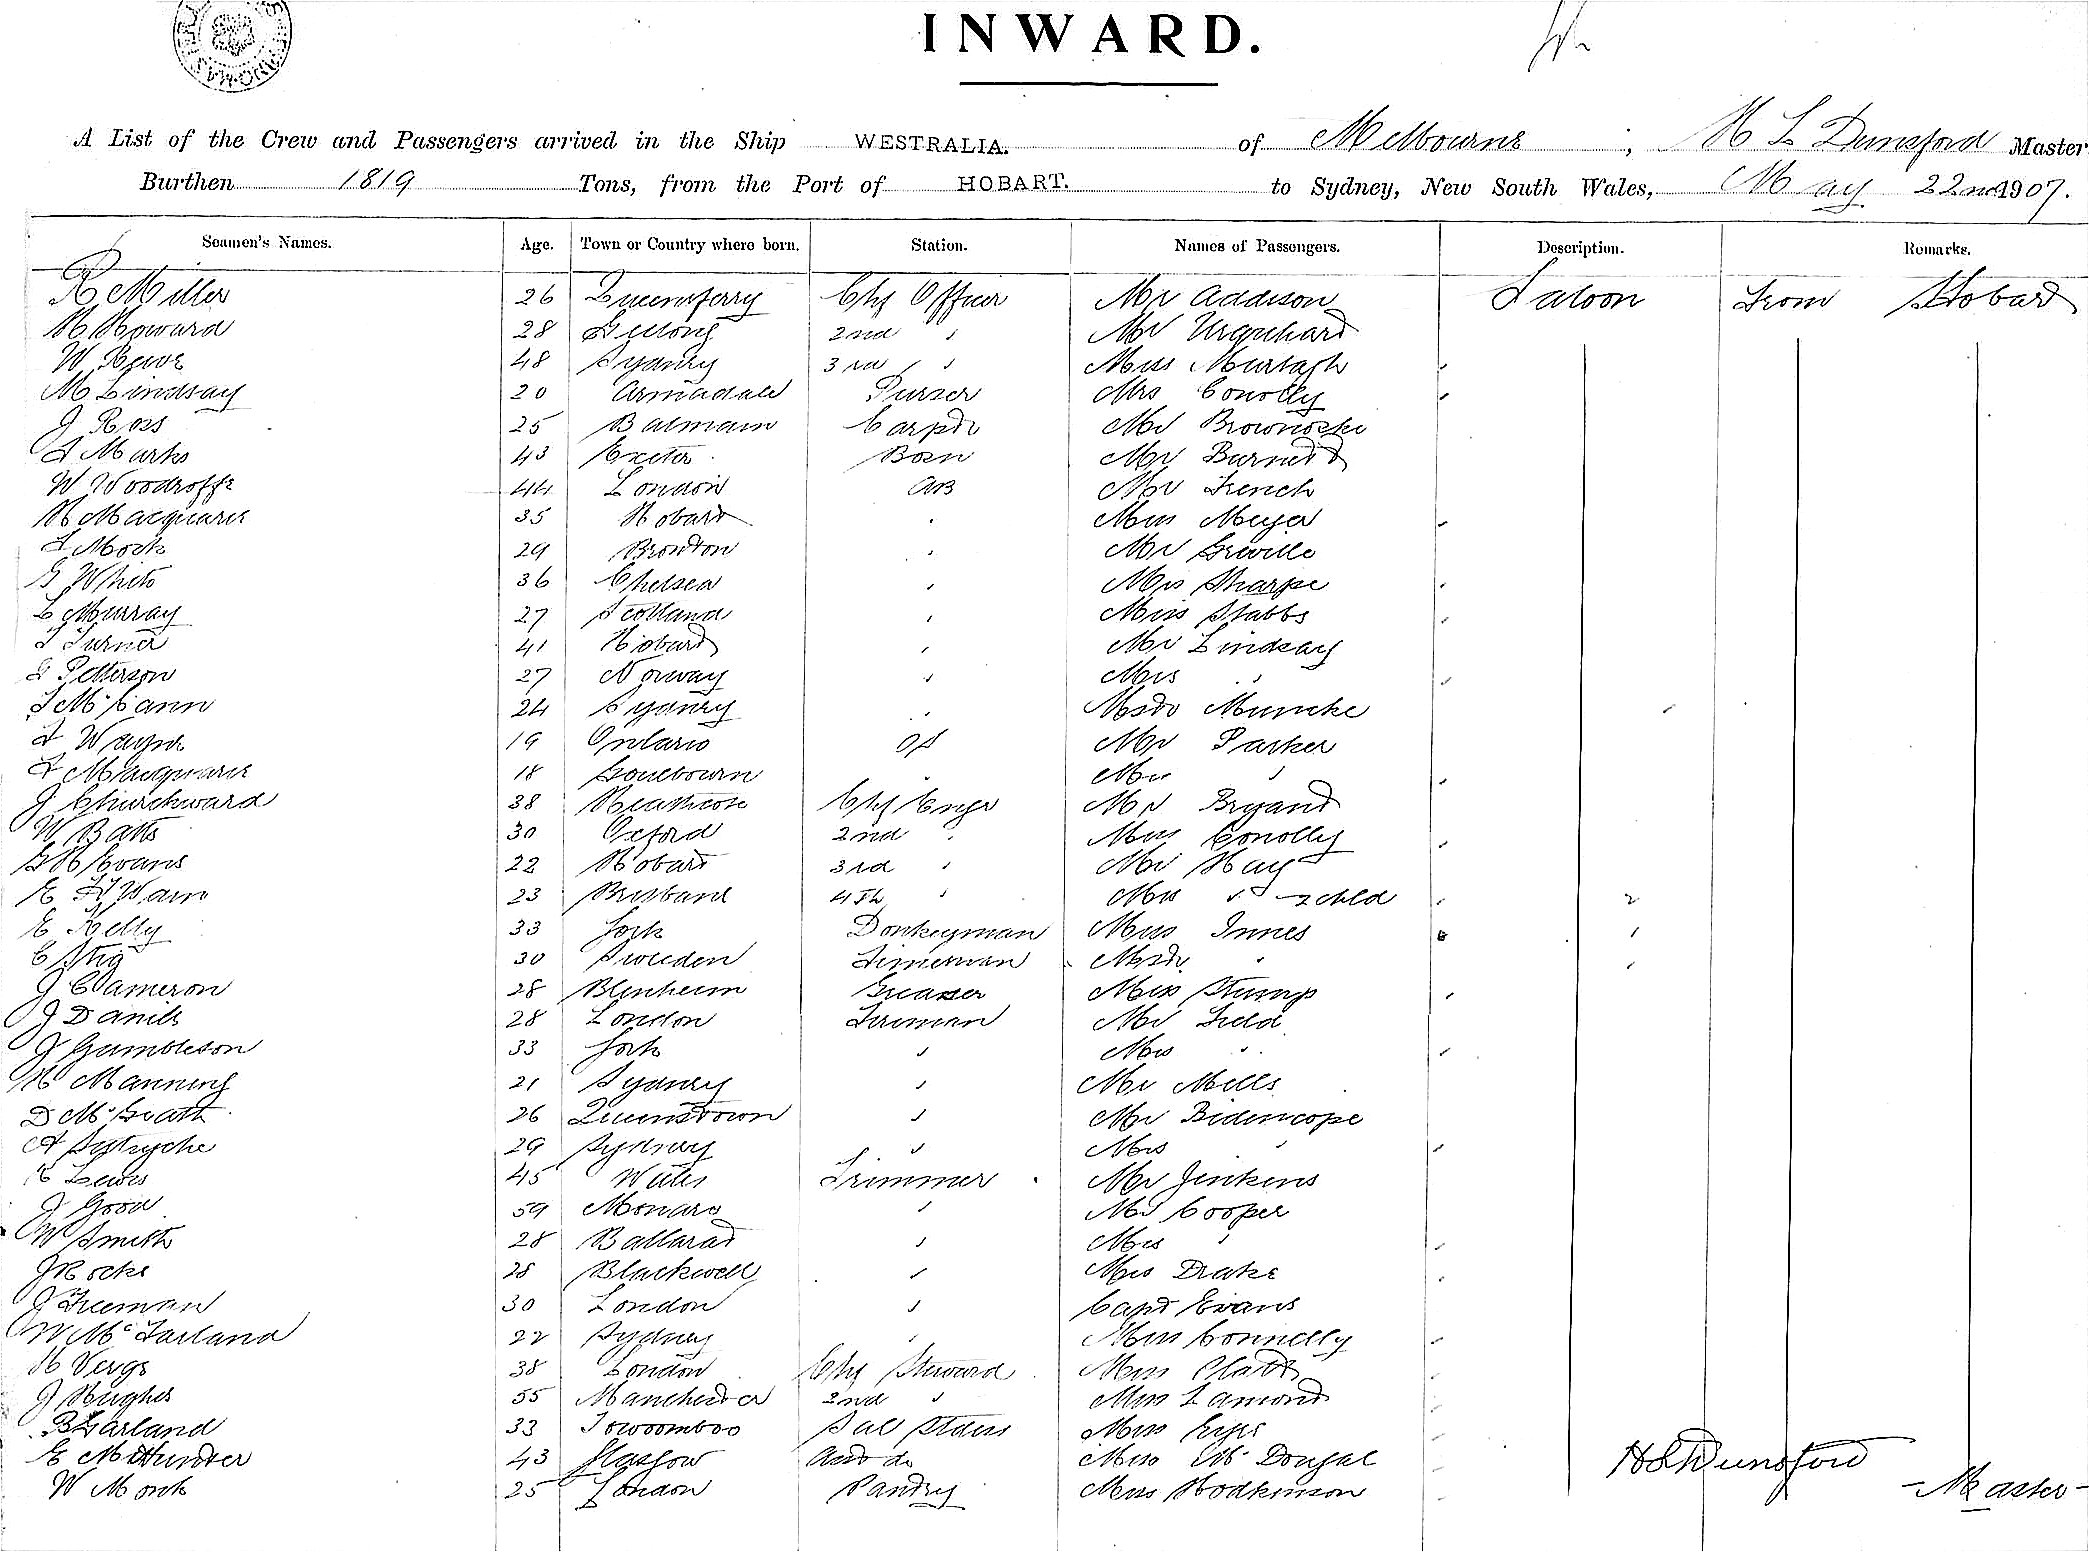 INWARD.
A List of the Crew and Passengers arrived in the Ship WESTRALIA. of Melbourne, H L Dunsford Master
Burthen 1819 Tons, from the Port of HOBART. to Sydney, New South Wales, May 22nd 1907.
Seamen's Names. Age. Town or Country where born. Station. Names of Passengers. Description. Remarks.
R Miller 26 Queensferry Chf Officer Mr Addison Saloon From Hobart
H Howard 28 Geelong 2nd " Mr Urquhart
W 48 Sydney 3rd " Miss Murtagh
M Lindsay 20 Armadale Purser Mrs Conolly
J Ross 25 Balmain Carptr Mr Brownoske
Marks 43 Exeter Bosn Mr Burnett
W Woodroffe 44 London AB Mr French
H Macquarie 35 Hobart " Miss Meyer
Mock 29 Bronton " Mr Greville
G White 36 Chelsea " Mrs Sharpe
L Murray 27 Scotland " Miss Stabbs
T Turner 41 Hobart " Mr Lindsay
Petterson 27 Norway " Mrs "
McCann 24 Sydney " Mstr Muncke
Wayne 19 Ontario OS Mr Parker
Macquarie 18 Goulbourn " Mrs "
J Churchward 38 Heathcote Chf Engr Mr Bryant
W Batts 30 Oxford 2nd " Miss Conolly
G H Evans 22 Hobart 3rd " Mr Hay
E 23 Brisbane 4th " Mrs " 2 chld 2
E Kelly 33 Cork Donkeyman Miss Innes
C Stig 30 Sweeden Fireman Mstr "
J Cameron 28 Blenheim Greaser Miss Stump
J Daniels 28 London Fireman Mr Field
J Gumbleson 33 Cork " Mrs "
H Manning 21 Sydney " Mr Mills
D McGrath 26 Queenstown " Mr Bidencope
A 29 Sydney " Mrs "
E Lewis 45 Wales Trimmer Mr Jenkins
J Good 59 Monaro " Mr Cooper
W Smith 28 Ballarat " Mrs "
J Rocke 28 Blackwell " Mrs Drake
J Freeman 30 London " Capt Evans
W McFarland 22 Sydney " Miss Connelly
H Verge 38 London Chf Steward Miss Platt
J Hughes 55 Manchester 2nd " Miss Lamond
B Garland 33 Towoomboo Sal Stdess Miss
E McHunter 43 Glasgow And do Miss McDougal H L Dunsford
W Monk 25 London Pantry Miss Hodkinson - Master -